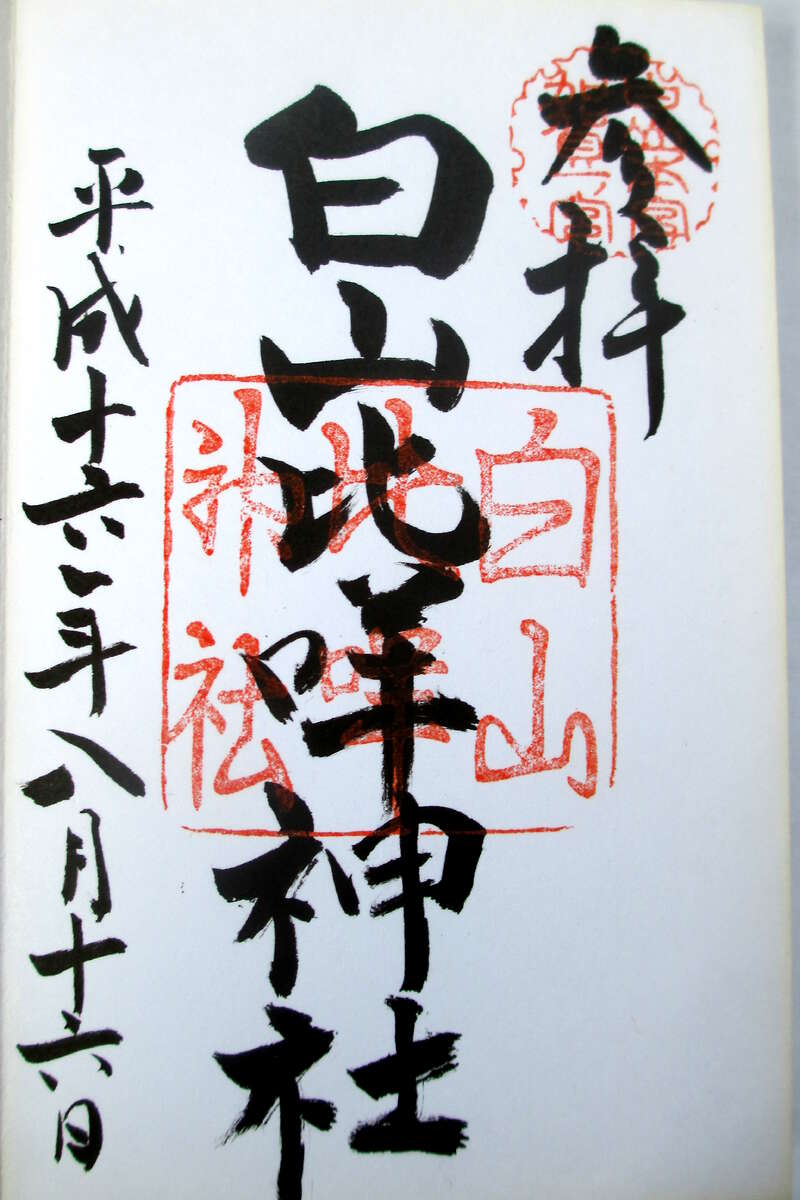 参拝
白山比咩神社
平成十六年八月十六日
白山
比咩
神社